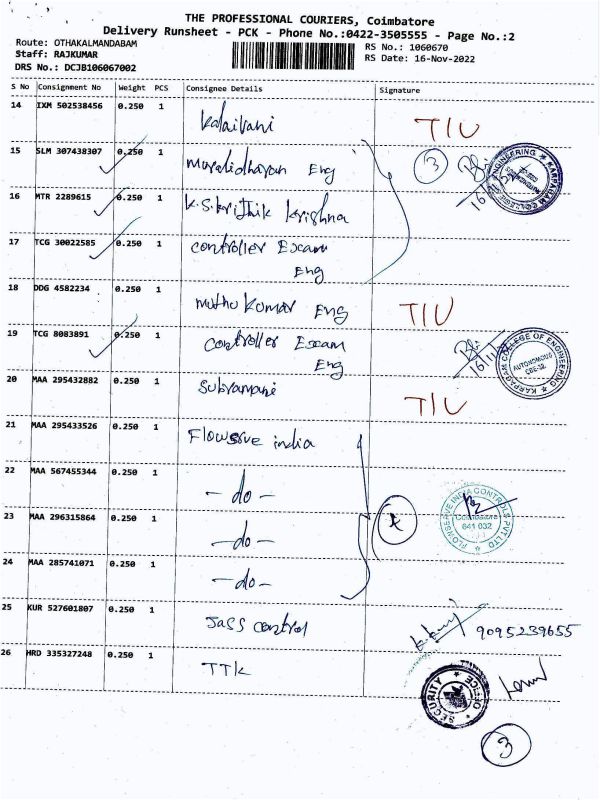 THE PROFESSIONAL COURIERS, Coimbatore
Delivery Runsheet - PCK - Phone No.:0422-3505555 - Page No.:2
Route: OTHAKALMANDABAM
RS No.: 1060670
Staff: RAJKUMAR
RS Date: 16-Nov-2022
DRS No.: DCJB106067002
S No Consignment No Weight PCS Consignee Details Signature
14 IXM 502538456 0.250 1 Kalaivani TIU
15 SLM 307438307 0.250 1 Muralidharan Eng 3
16 MTR 2289615 0.250 1 K.S.Krithik Krishna
17 TCG 30022585 0.250 1 Controller Exam
Eng
18 DDG 4582234 0.250 1 Muthu Kumar Eng TIU
19 TCG 8083891 0.250 1 Controller Exam
Eng
KARPAGAM COLLEGE OF ENGINEERING
AUTONOMOUS
CBE-32
20 MAA 295432882 0.250 1 Subramani TIU
21 MAA 295433526 0.250 1 Flowserve india
22 MAA 567455344 0.250 1 - do -
23 MAA 296315864 0.250 1 - do -
FLOWSERVE INDIA CONTROLS PVT LTD
Coimbatore
641 032
24 MAA 285741071 0.250 1 - do -
25 KUR 527601807 0.250 1 Jass control 9095239655
26 HRD 335327248 0.250 1 TTK
SECURITY OFFICE
3